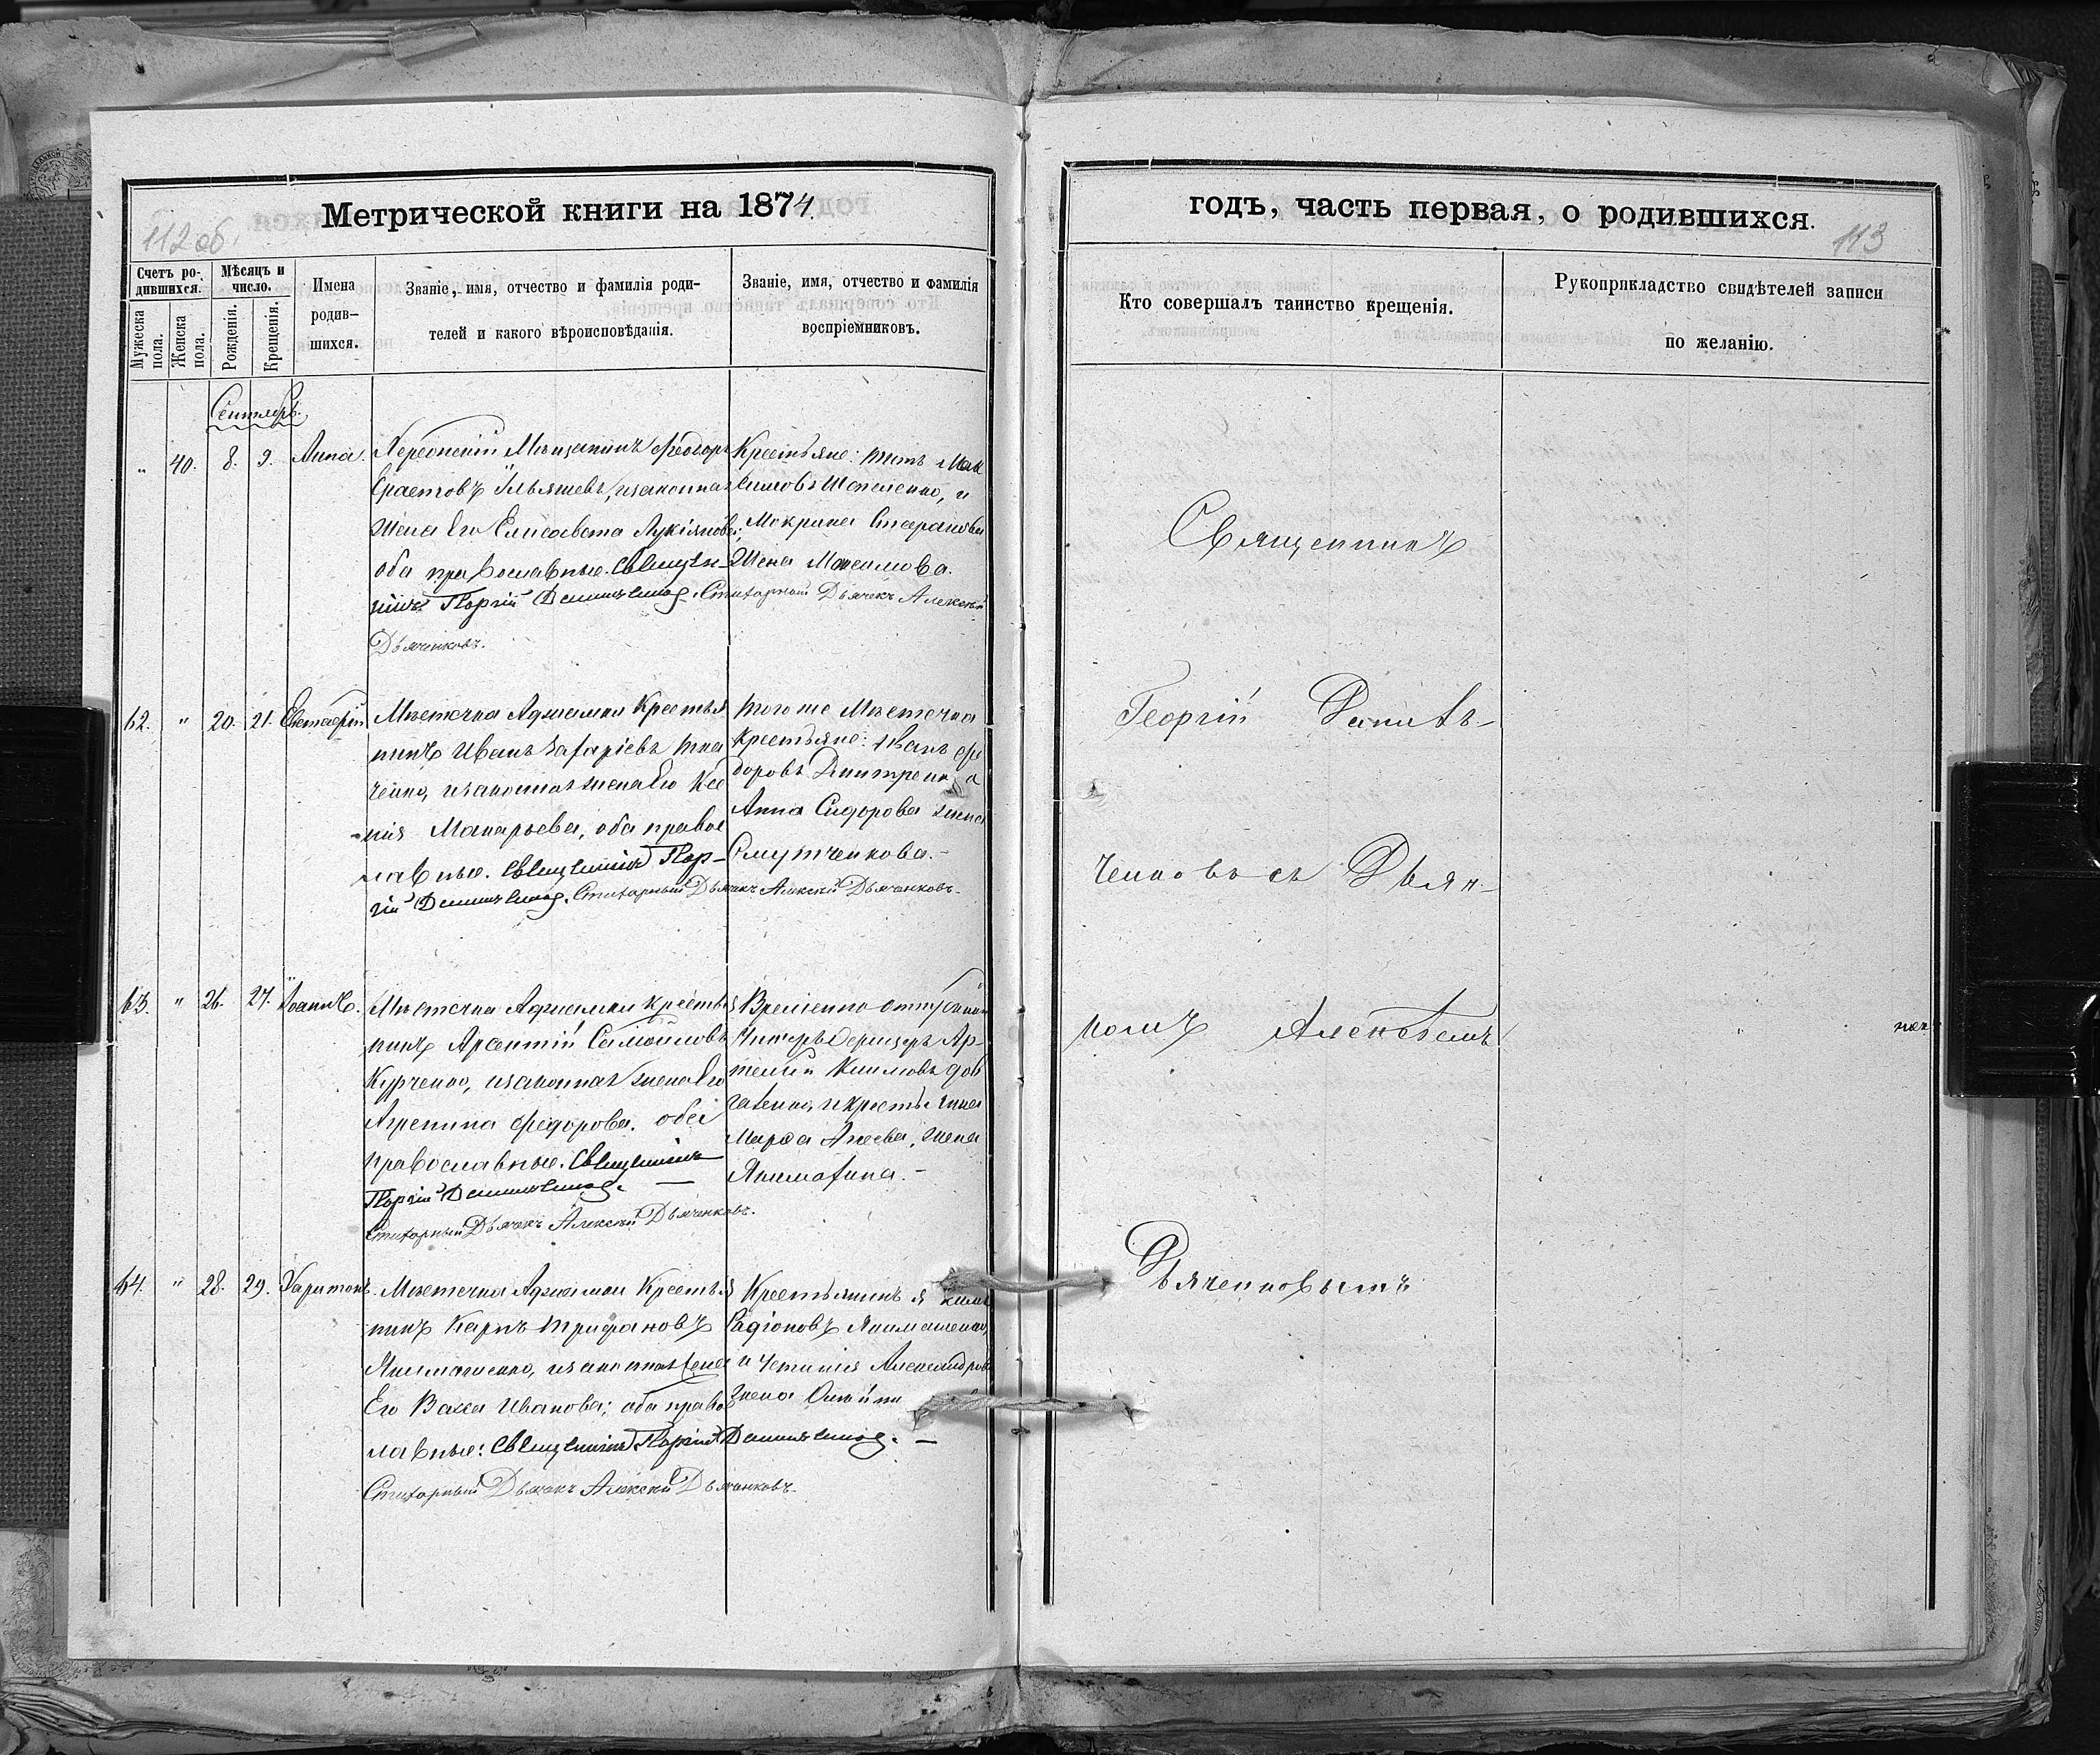 112 об.
Метрической книги на 1874
Счетъ родившихся.
Мужеска пола.
Женска пола.
Мѣсяцъ и число.
Рожденія.
Крещенія.
Имена родившихся.
Званіе, имя, отчество и фамилія роди-
телей и какого вѣроисповѣданія.
Званіе, имя, отчество и фамилія
воспріемниковъ.
Сентябрь.
" 40. 8. 9. Анна.
Херсонскій Мѣщанинъ Феодоръ
Ерастовъ изаконная
жена Его Елисавета Лукіянова;
оба православные. Священ-
никъ Георгій
Стихарный Дьячекъ Алексѣй
Дьяченковъ.
Крестьяне: Титъ Мак
симовъ и
Мокрина
жена Максимова.
62. " 20. 21. Евстафій
Мѣстечка Аджамки Крестья
нинъ Иванъ Захаріевъ Тка
ченко, изаконная жена Его Ксе
нія Макарьева, оба правос
лавные. Священникъ Геор-
гій
Стихарный Дьячекъ Алексѣй Дьяченковъ.
Того же Мѣстечка
Крестьяне: Иванъ Фе
доровъ Дмитренко
Анна Сидорова жена
63. " 26. 27. Іоаннъ.
Мѣстечка Аджамки крестья
нинъ Самойловъ
Курченко, изаконная жена Его
Агрепина Федорова. оба
православные. Священникъ
Георгій
Стихарный Дьячекъ Алексѣй Дьяченковъ.
Временно отпускной
Унтеръ Офицеръ Ар-
темій Климовъ Дов
галенко, и крестьянка
Марѳа жена
64. " 28. 29. Харитонъ.
Мѣстечка Аджамки Крестья
нинъ Карпъ Трифановъ
Якимашенко, изаконная жена
Его Васса Иванова; оба правос
лавные: Священникъ Георгій
Стихарный Дьячекъ Алексѣй Дьяченковъ.
Крестьянинъ Яким
Радіоновъ Якимашенко,
и Устинія Александрова
жена
годъ, часть первая, о родившихся.
113
Кто совершалъ таинство крещенія.
Рукоприкладство свидѣтелей записи
по желанію.
Священникъ
Георгій Данил-
ченковъ съ Дьяч-
комъ Алексѣемъ
Дьяченковымъ